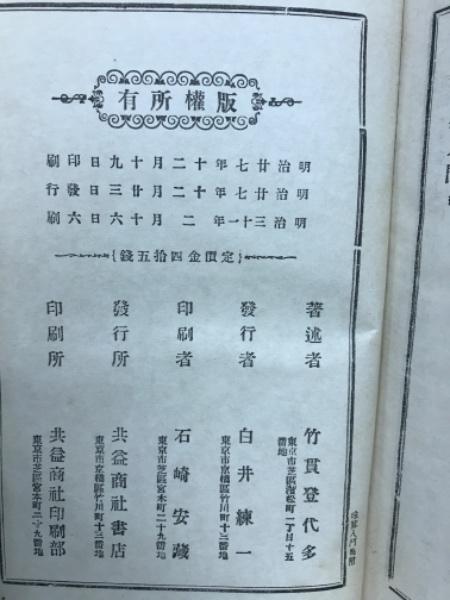 版權所有
明治廿七年十二月十九日印刷
明治廿七年十二月廿三日發行
明治三十一年二月十六日六刷
定價金四拾五錢
著述者
竹貫登代多
發行者
白井練一
東京市京橋區竹川町十三番地
印刷者
石崎安藏
東京市芝區宮本町二十九番地
發行所
共益商社書店
東京市京橋區竹川町十三番地
印刷所
共益商社印刷部
東京市芝區宮本町二十九番地